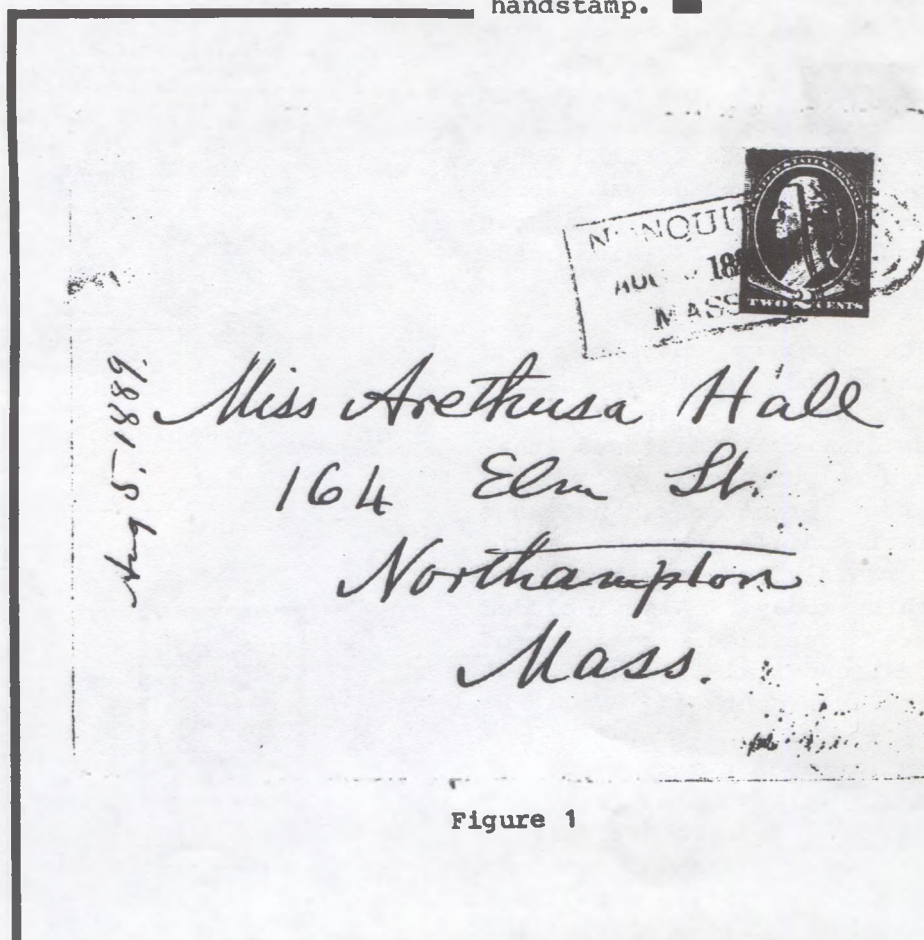 handstamp.
UNITED STATES POSTAGE
AUG 188
MASS
TWO 2 CENTS
Aug 5. 1889.
Miss Arethusa Hall
164 Elm St.
Northampton
Mass.
Figure 1